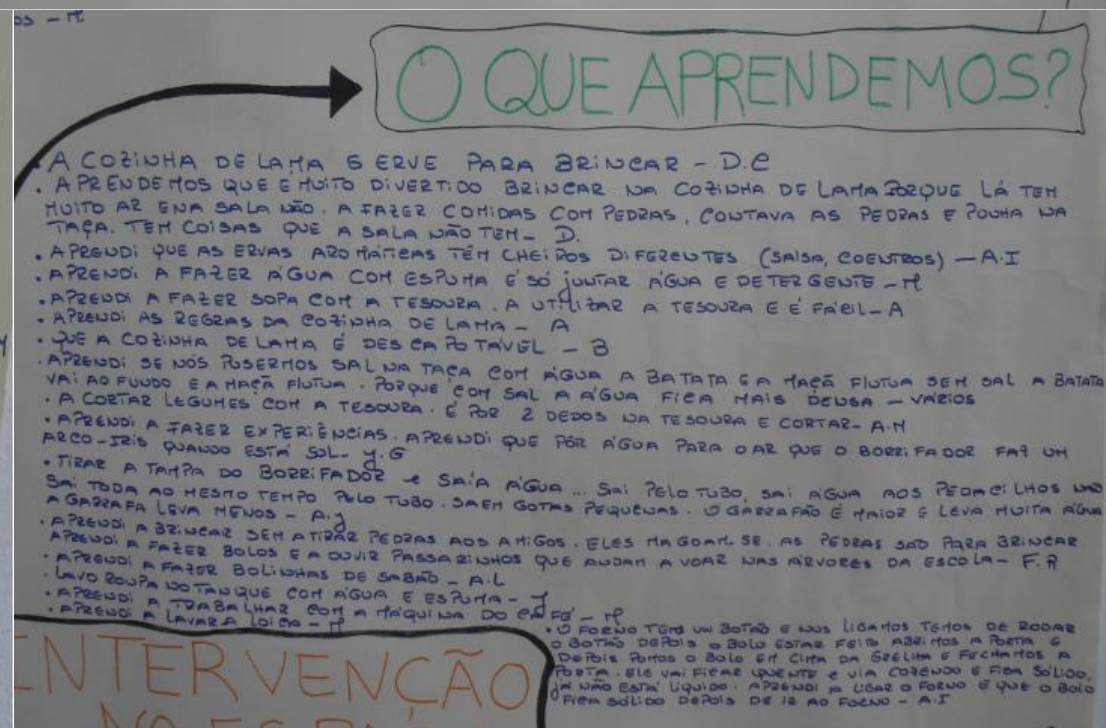 os - M
O QUE APRENDEMOS?
. A COZINHA DE LAMA SERVE PARA BRINCAR - D.C
. APRENDEMOS QUE E MUITO DIVERTIDO BRINCAR NA COZINHA DE LAMA PORQUE LÁ TEM
MUITO AR E NA SALA NÃO. A FAZER COMIDAS COM PEDRAS, CONTAVA AS PEDRAS E POUHA NA
TAÇA. TEM COISAS QUE A SALA NÃO TEM - D.
. APRENDI QUE AS ERVAS AROMÁTICAS TÊM CHEIROS DIFERENTES (SALSA, COENTROS) - A.I
. APRENDI A FAZER ÁGUA COM ESPUMA É SÓ JUNTAR ÁGUA E DETERGENTE - M.
. APRENDI A FAZER SOPA COM A TESOURA. A UTILIZAR A TESOURA E É FÁCIL - A
. APRENDI AS REGRAS DA COZINHA DE LAMA - A
. QUE A COZINHA DE LAMA É DESCAPOTÁVEL - B
. APRENDI SE NÓS PUSERMOS SAL NA TAÇA COM ÁGUA A BATATA E A MAÇÃ FLUTUA SEM SAL A BATATA
VAI AO FUNDO E A MAÇÃ FLUTUA. PORQUE COM SAL A ÁGUA FICA MAIS DENSA - VÁRIOS
. A CORTAR LEGUMES COM A TESOURA. É POR 2 DEDOS NA TESOURA E CORTAR - A.M
. APRENDI A FAZER EXPERIÊNCIAS. APRENDI QUE PÔR ÁGUA PARA O AR QUE O BORRIFADOR FAZ UM
ARCO-IRIS QUANDO ESTÁ SOL - Y.G
. TIRAR A TAMPA DO BORRIFADOR e SAÍA ÁGUA... SAI PELO TUBO, SAI ÁGUA AOS PEDACILHOS NÃO
SAI TODA AO MESMO TEMPO PELO TUBO. SAEM GOTAS PEQUENAS. O GARRAFÃO É MAIOR E LEVA MUITA ÁGUA
A GARRAFA LEVA MENOS - A.J
. APRENDI A BRINCAR SEM ATIRAR PEDRAS AOS AMIGOS. ELES MAGOAM-SE. AS PEDRAS SÃO PARA BRINCAR
APRENDI A FAZER BOLOS E A OUVIR PASSARINHOS QUE ANDAM A VOAR NAS ÁRVORES DA ESCOLA - F.R
. APRENDI A FAZER BOLINHAS DE SABÃO - A.L
. LAVO ROUPA NO TANQUE COM ÁGUA E ESPUMA - J
. APRENDI A TRABALHAR COM A MÁQUINA DO CAFÉ - M
. APRENDI A LAVAR A LOIÇA - M
. O FORNO TEM UM BOTÃO E NOS LIGAMOS TEMOS DE RODAR
O BOTÃO DEPOIS O BOLO ESTAR FEITO ABRIMOS A PORTA E
DEPOIS POMOS O BOLO EM CIMA DA GRELHA E FECHAMOS A
PORTA. ELE VAI FICAR QUENTE e VIA COZENDO E FICA SÓLIDO,
JÁ NÃO ESTÁ LIQUIDO. APRENDI A LIGAR O FORNO E QUE O BOLO
FICA SÓLIDO DEPOIS DE IR AO FORNO - A.I
INTERVENÇÃO
NO ESPA